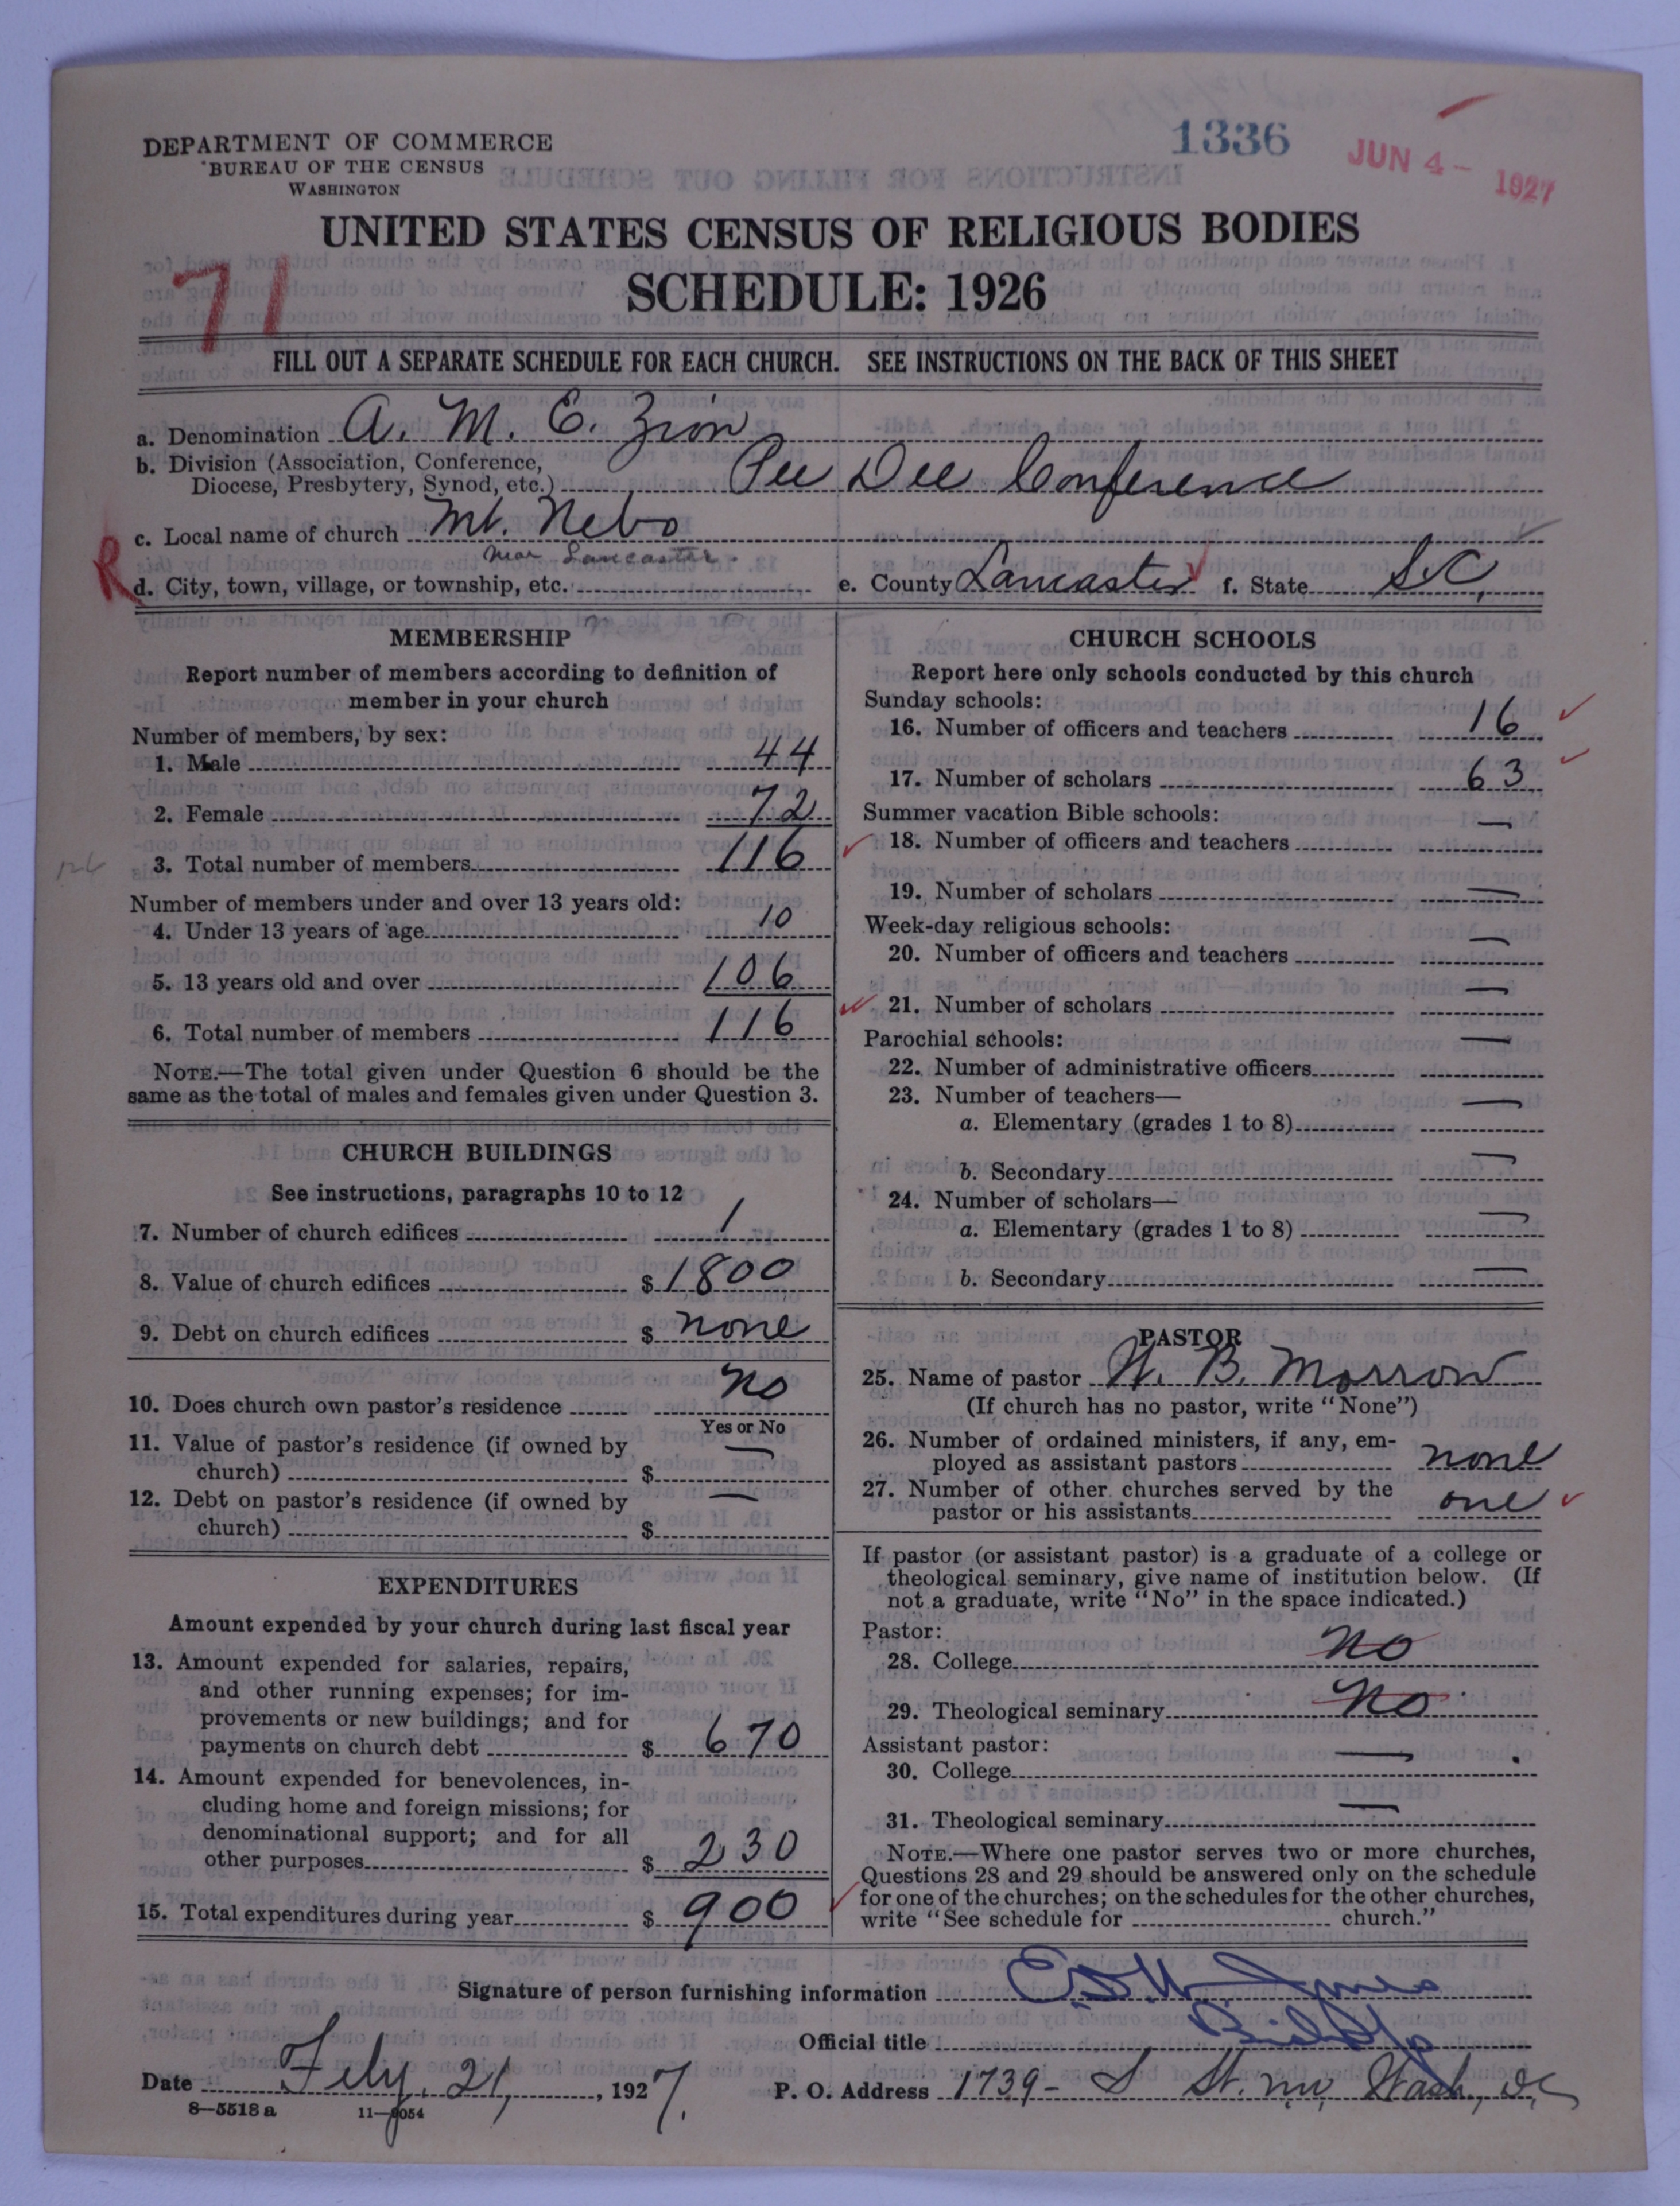 1336
JUN 4 - 1927
DEPARTMENT OF COMMERCE
BUREAU OF THE CENSUS
WASHINGTON
UNITED STATES CENSUS OF RELIGIOUS BODIES
SCHEDULE: 1926
71
FILL OUT A SEPARATE SCHEDULE FOR EACH CHURCH. SEE INSTRUCTIONS ON THE BACK OF THIS SHEET
a. Denomination A. M. E. Zion
b. Division (Association, Conference,
Diocese, Presbytery, Synod, etc.) Pee Dee Conference
c. Local name of church Mt. Nebo
near Lancaster.
R d. City, town, village, or township, etc. e. County Lancaster f. State S.C.
MEMBERSHIP
Report number of members according to definition of
member in your church
Number of members, by sex:
1. Male 44
2. Female 72
3. Total number of members 116
126
Number of members under and over 13 years old:
4. Under 13 years of age 10
5. 13 years old and over 106
6. Total number of members 116
NOTE.—The total given under Question 6 should be the
same as the total of males and females given under Question 3.
CHURCH BUILDINGS
See instructions, paragraphs 10 to 12
7. Number of church edifices 1
8. Value of church edifices $ 1800
9. Debt on church edifices $ none
10. Does church own pastor's residence no
Yes or No
11. Value of pastor's residence (if owned by
church) $ —
12. Debt on pastor's residence (if owned by
church) $ —
EXPENDITURES
Amount expended by your church during last fiscal year
13. Amount expended for salaries, repairs,
and other running expenses; for im-
provements or new buildings; and for
payments on church debt $ 670
14. Amount expended for benevolences, in-
cluding home and foreign missions; for
denominational support; and for all
other purposes $ 230
15. Total expenditures during year $ 900
CHURCH SCHOOLS
Report here only schools conducted by this church
Sunday schools:
16. Number of officers and teachers 16
17. Number of scholars 63
Summer vacation Bible schools:
18. Number of officers and teachers —
19. Number of scholars —
Week-day religious schools:
20. Number of officers and teachers —
21. Number of scholars —
Parochial schools:
22. Number of administrative officers —
23. Number of teachers—
a. Elementary (grades 1 to 8) —
b. Secondary —
24. Number of scholars—
a. Elementary (grades 1 to 8) —
b. Secondary —
PASTOR
25. Name of pastor B. Morrow
(If church has no pastor, write "None")
26. Number of ordained ministers, if any, em-
ployed as assistant pastors none
27. Number of other churches served by the
pastor or his assistants one
If pastor (or assistant pastor) is a graduate of a college or
theological seminary, give name of institution below. (If
not a graduate, write "No" in the space indicated.)
Pastor:
28. College no
29. Theological seminary no
Assistant pastor:
30. College —
31. Theological seminary —
NOTE.—Where one pastor serves two or more churches,
Questions 28 and 29 should be answered only on the schedule
for one of the churches; on the schedules for the other churches,
write "See schedule for church."
Signature of person furnishing information
Official title Bishop
Date Feby. 21, 1927. P. O. Address 1739 - S St. nw, Wash, DC
8—5518 a 11—9054